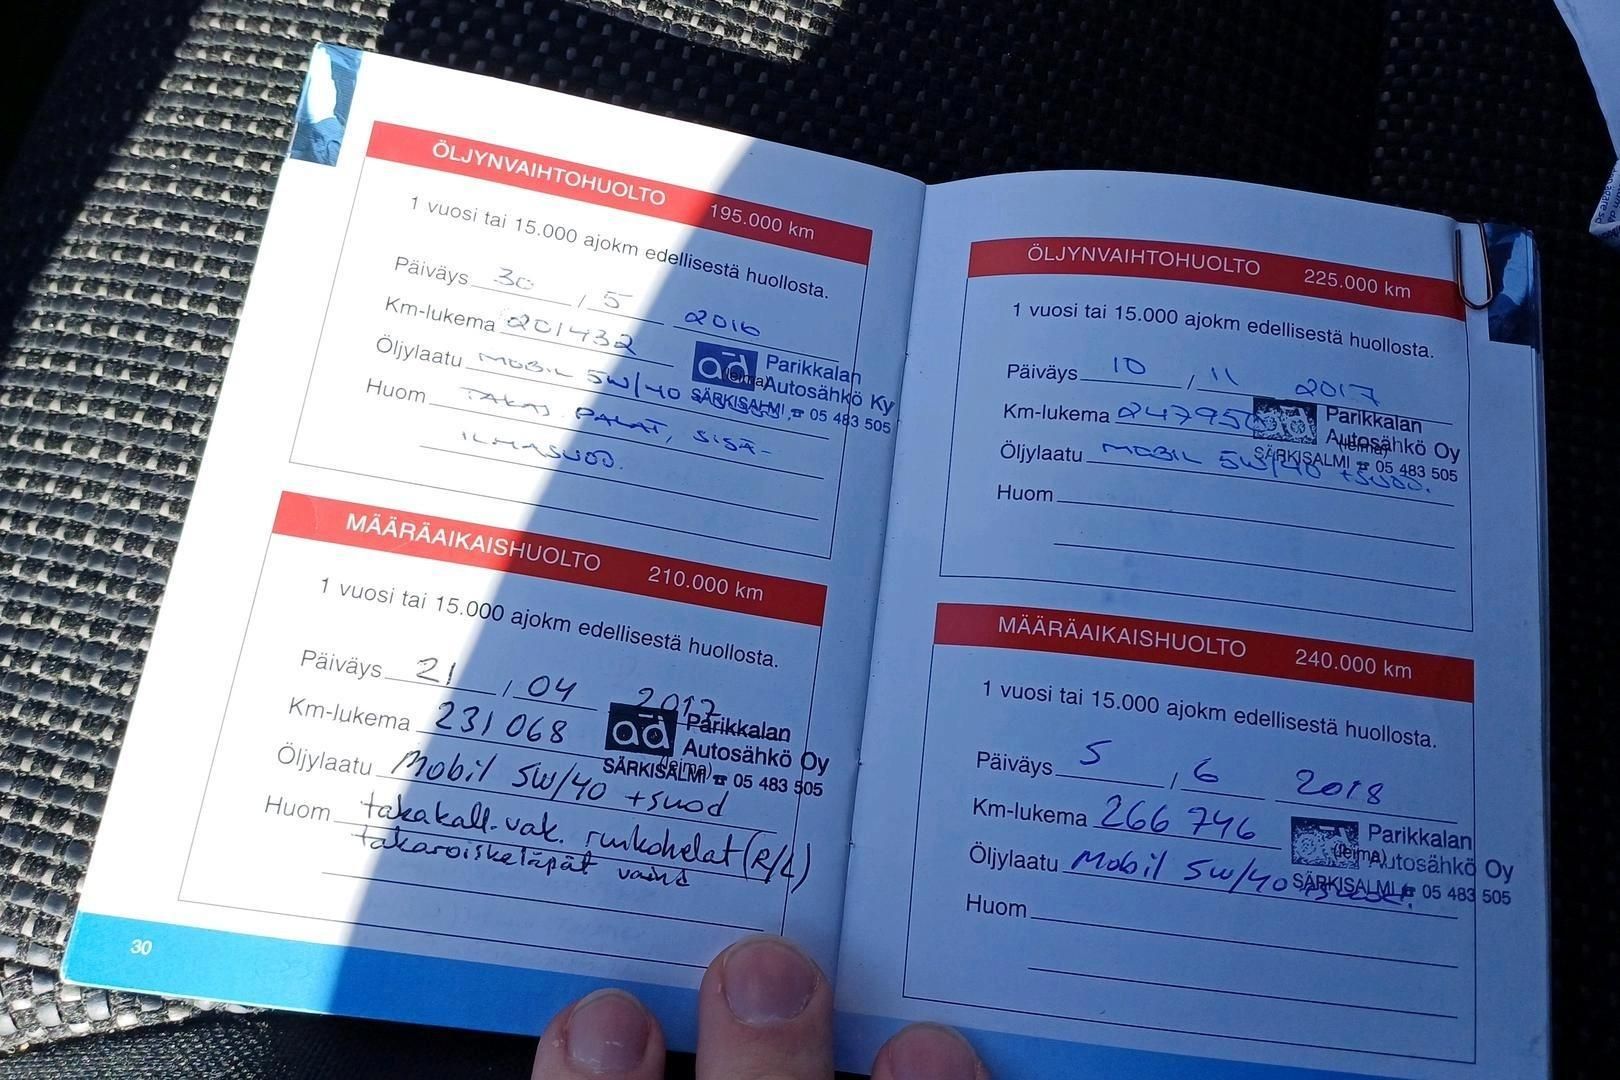 ÖLJYNVAIHTOHUOLTO 195.000 km
1 vuosi tai 15.000 ajokm edellisestä huollosta.
Päiväys 30 / 5 2016
Km-lukema 201432
Öljylaatu MOBIL 5W/40 +SUOD.
Huom TAKAJ. PALAT, SISÄ-
ILMASUOD.
(leima)
ad Parikkalan
Autosähkö Ky
SÄRKISALMI ☎ 05 483 505
MÄÄRÄAIKAISHUOLTO 210.000 km
1 vuosi tai 15.000 ajokm edellisestä huollosta.
Päiväys 21 / 04 2017
Km-lukema 231068
Öljylaatu Mobil 5W/40 +suod
Huom takakall.vak. ruukohelat (R/L)
takaroiskeläpät
(leima)
ad Parikkalan
Autosähkö Oy
SÄRKISALMI ☎ 05 483 505
30
ÖLJYNVAIHTOHUOLTO 225.000 km
1 vuosi tai 15.000 ajokm edellisestä huollosta.
Päiväys 10 / 11 2017
Km-lukema 247950
Öljylaatu MOBIL 5W/40 +SUOD.
Huom
(leima)
ad Parikkalan
Autosähkö Oy
SÄRKISALMI ☎ 05 483 505
MÄÄRÄAIKAISHUOLTO 240.000 km
1 vuosi tai 15.000 ajokm edellisestä huollosta.
Päiväys 5 / 6 2018
Km-lukema 266746
Öljylaatu Mobil 5W/40 +suod.
Huom
(leima)
ad Parikkalan
Autosähkö Oy
SÄRKISALMI ☎ 05 483 505